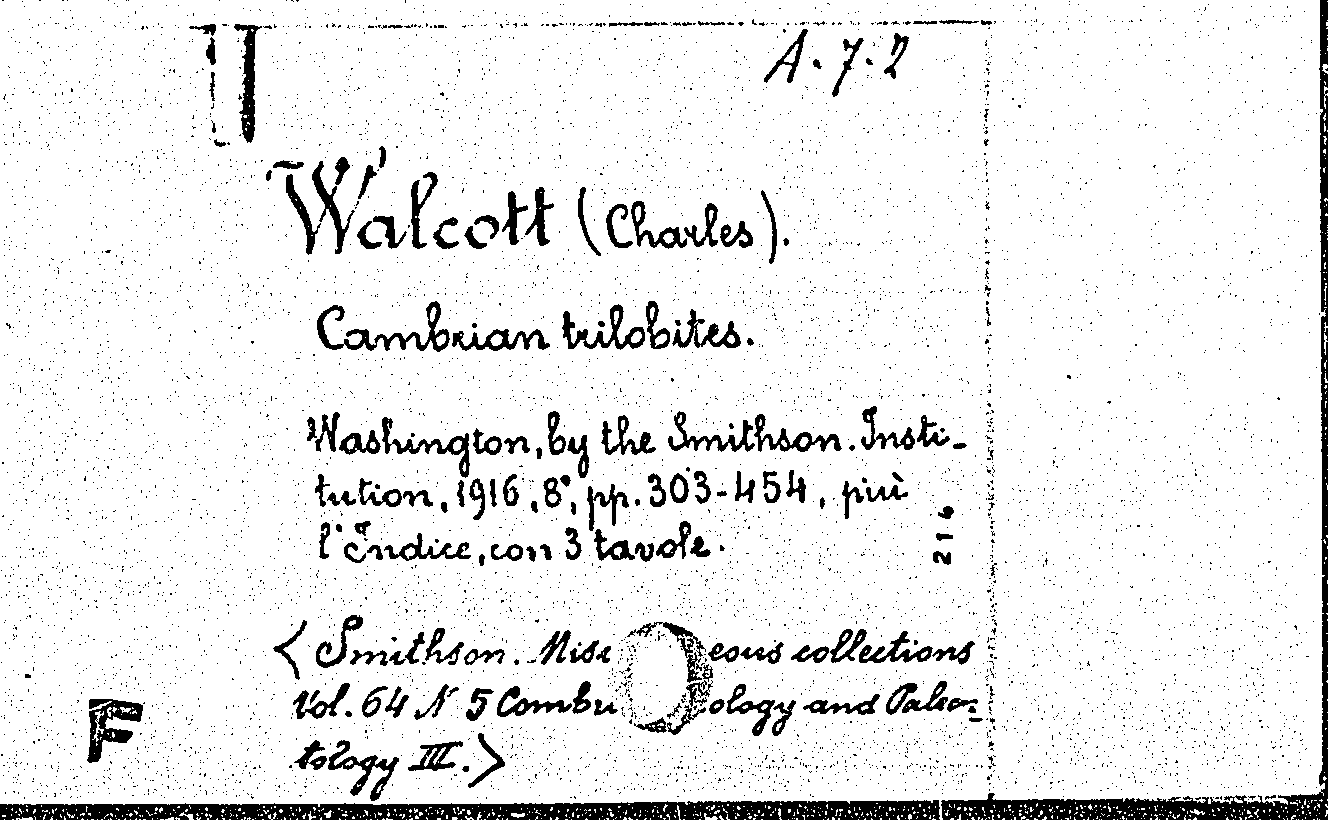 A.7.2
Walcott (Charles).
Cambrian trilobites.
Washington, by the Smithson. Insti-
tution, 1916, 8°, pp. 303-454, più
l'Indice, con 3 tavole.
216
<Smithson. eous collections
Vol. 64 N 5 ology and Paleo=
tology III.>
F